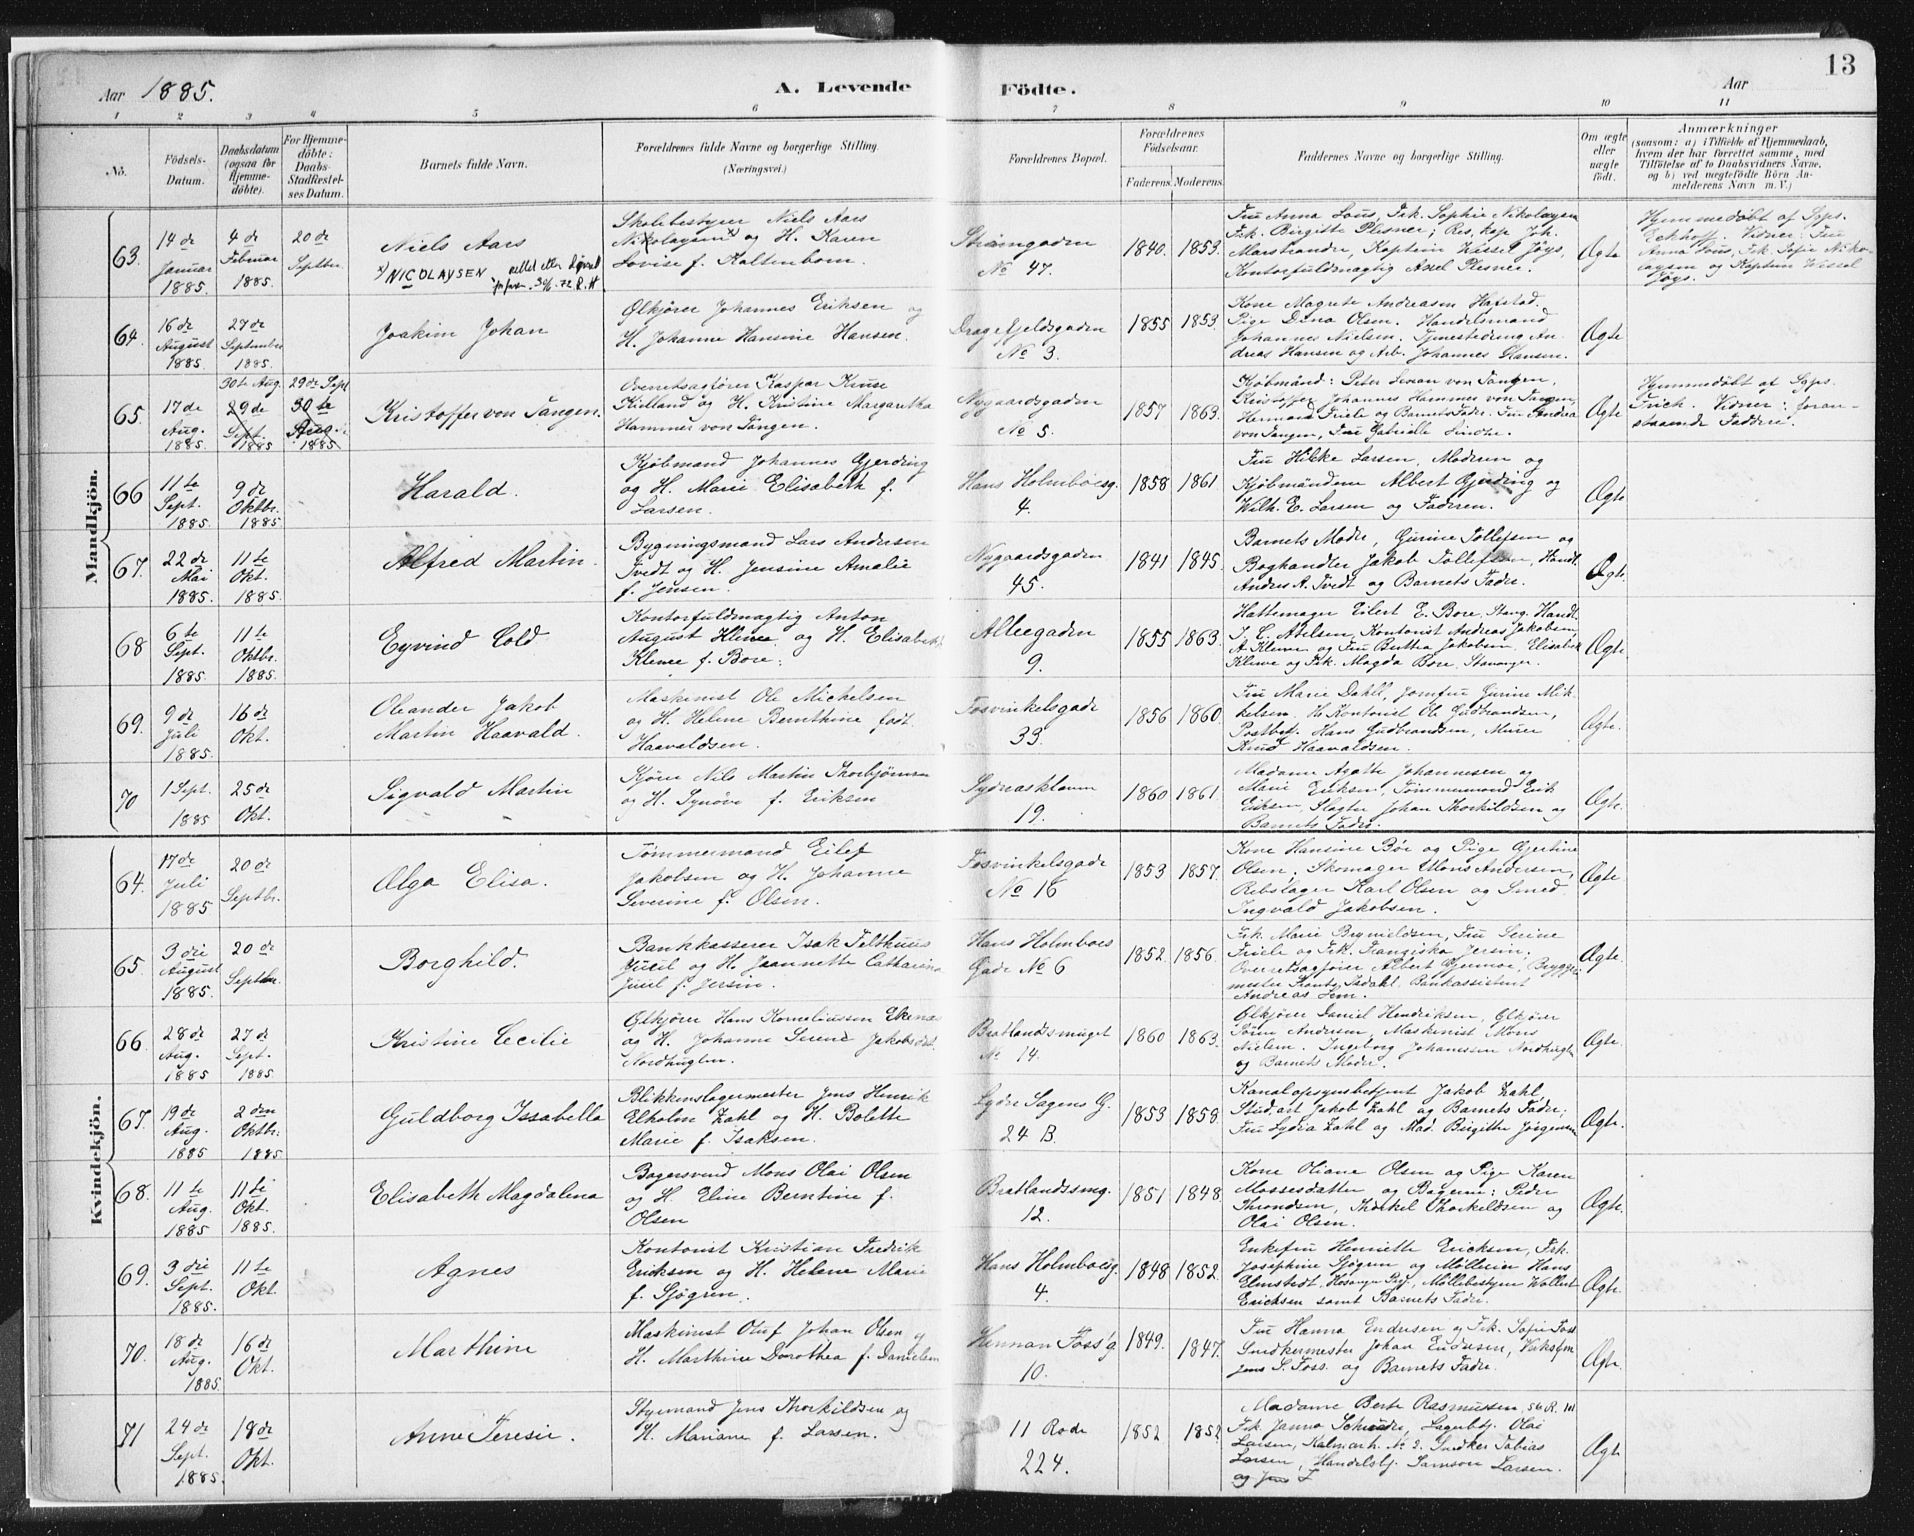 13
Aar 1885.
A. Levende Födte.
Aar
1 2 3 4 5 6 7 8 9 10 11
No.
Födsels-Datum.
Daabsdatum (ogsaa for Hjemme-döbte).
For Hjemme-döbte: Daabs-Stadfæstel-ses Datum.
Barnets fulde Navn.
Forældrenes fulde Navne og borgerlige Stilling. (Næringsvei.)
Forældrenes Bopæl.
Forældrenes Födselsaar.
Faderens. Moderens.
Faddernes Navne og borgerlige Stilling.
Om ægte eller uægte födt.
Anmærkninger (saasom: a) i Tilfælde af Hjemmedaab, hvem der har forrettet samme, med Tilföielse af to Daabsvidners Navne, og b) ved uægtefödte Börn Anmelderens Navn m. V.)
Mandkjön.
63. 14 de Januar 1885. 4 de Februar 1885. 20 de Septbr.
Niels Aars
x) NICOLAYSEN rettet etter
Skolebestyrer Niels Aars
Nikolaysen x) og H. Karen
Lovise f. Kaltenborn.
Strømgaden No 47.
1840. 1853.
Fru Anna Lous, Frk. Sophie Nikolaysen
Frk. Birgitte Plesner; Res. kap. Joh.
Marstrander, Kaptein Wessel Jøys,
Kontorfuldmægtig Axel Plesner.
Ægte
Hjemmedøbt af Sgps.
Eckhoff. Vidner: Fru
Anna Lous, Frk. Sofie Niko-
laysen og Kaptein Wessel
Jøys.
64. 16 de August 1885. 27 de September 1885.
Joakim Johan
Ølkjører Johannes Eriksen og
H. Johanne Hansine Hansen.
Dragefjeldsgaden No 3.
1855 1853.
Kone Magrete Andreasen Hafstad.
Pige Dina Olsen. Handelsmand
Johannes Nielsen. Tjenestedreng An-
dreas Hansen og Arb. Johannes Hansen.
Ægte
65. 17 de Aug. 1885. 30te Aug. 29 de Sept. 1885 29 de Sept 30 te Aug. 1885
Kristoffer von Tangen.
Overretsagfører Kaspar Kruse
Kielland og H. Kristine Margaretha
Hammer von Tangen.
Nygaardsgaden No 5.
1857 1863.
Kjøbmænd: Peter Severin von Tangen,
Kristoffer Johannes Hammer von Tangen,
Herman Friele og Barnets Fader. Fru Andrea
von Tangen, Fru Gabrielle Lindtner.
Ægte
Hjemmedøbt af Sgps.
Frich. Vidner: foran-
staaende Faddere.
66 11 te Sept. 1885. 9 de Oktbr. 1885
Harald.
Kjøbmand Johannes Gjerding
og H. Marie Elisabeth f.
Larsen.
Hans Holmboesg. 4.
1858 1861
Fru Hilke Larsen, Moderen og
Kjøbmændene Albert Gjerding og
Wilh. E. Larsen og Faderen.
Ægte
67. 22 de Mai 1885. 11 te Okt. 1885.
Alfred Martin.
Bygningsmand Lars Andersen
Tvedt og H. Jensine Amalie
f. Jensen.
Nygaardsgaden 45.
1841 1845.
Barnets Moder, Gurine Tollefsen og
Boghandler Jakob Tollefsen, Handl.
Andres A. Tvedt og Barnets Fader.
Ægte.
68 6 te Sept. 1885 11 te Oktbr. 1885.
Eyvind Cold
Kontorfuldmægtig Anton
August Klewe og H. Elisabeth
Klewe f. Bore.
Alleegaden 9.
1855 1863.
Hattemager Eilert E. Bore, Stavg. Handl.
J. C. Atelsen, Kontorist Andreas Jakobsen
A Klewe og Fru Bertha Jakobsen, Elisabeth
Klewe og Frk. Magda Bore, Stavanger.
Ægte.
69. 9 de Juli 1885. 16 de Okt.
Oleander Jakob
Martin Haavald.
Maskinist Ole Mickelsen
og H. Helene Bernthine født
Haavaldsen.
Fosvinkelsgade 33.
1856 1860.
Fru Marie Dahll, Jomfru Gurine Mik-
kelsen. Hr Kontorist Ole Gudbrandsen,
Postbet. Hans Gudbrandsen, Murer
Knud Haavaldsen.
Ægte.
70 1 Sept. 1885 25 de Okt.
Sigvald Martin
Kjører Nils Martin Thorbjørnsen
og H. Synøve f. Eriksen
Sydnæsklaven 19.
1860 1861.
Madame Agathe Johannesen og
Marie Eriksen, Tømmermand Erik
Eriksen, Slagter Johan Thorkildsen og
Barnets Fader.
Ægte.
Kvindekjön.
64. 17 de Juli 1885 20 de Septbr.
Olga Elisa.
Tømmermand Eilef
Jakobsen og H. Johanne
Severine f. Olsen.
Fosvinkelsgade No 16
1853 1857.
Kone Hansine Bøe og Pige Gjertine
Olsen; Skomager Mons Andersen,
Rebslager Karl Olsen og Smed
Ingvald Jakobsen.
Ægte.
65. 3 die August 1885. 20 de Septbr.
Borghild.
Bankkasserer Isak Felthuus
Juul og H. Jeannette Catharina
Juul f. Jersin.
Hans Holmboes Gade No 6
1852. 1856.
Frk. Marie Brynieldsen, Fru Serine
Friele og Frk. Franziska Jersin;
Overretsagfører Albert Gjemoe, Brygge-
mester Isdahl, Bankassistent
Andreas Jem.
Ægte.
66. 28 de Aug. 1885 27 de Sept. 1885
Kristine Cecilie
Ølkjører Hans Korneliussen Ekenæs
og H. Johanne Serene Jakobsdtr.
Nordhuglen.
Bratlandssmuget No 14.
1860 1863.
Ølkjører Daniel Hendriksen, Ølkjører
Søren Andersen, Maskinist Mons
Nielsen. Ingeborg Johannessen Nordhuglen
og Barnets Moder.
Ægte.
67. 19 de Aug. 1885 2 den Oktbr. 1885
Guldborg Issabella
Blikkenslagermester Jens Henrik
Elholm Zahl og H. Bolette
Marie f. Isaksen.
Lyder Sagens G. 24 B.
1853 1858.
Kanalopsynsbetjent Jakob Zahl
Stud. art Jakob Zahl og Barnets Fader;
Fru Lydia Zahl og Mad. Birgitte Jørgensen
Ægte.
68. 11 te Aug. 1885 11 te Okt. 1885.
Elisabeth Magdalena
Bagersvend Mons Olai Olsen
og H. Eline Berntine f.
Olsen
Bratlandssmg. 12.
1851 1848.
Kone Oliane Olsen og Pige Karen
Mossesdatter og Bagerne: Peder
Throndsen, Thorkel Thorkeldsen og
Olai Olsen.
Ægte.
69. 3 die Sept. 1885. 11 te Okt.
Agnes
Kontorist Kristian Fredrik
Ericksen og H. Helene Marie
f. Sjøgren.
Hans Holmboesg. 4.
1848 1852.
Enkefru Henriette Ericksen, Frk.
Josephine Sjøgren og Møllerier Hans
Elmstedt, Møllebestyrer Wollert
Ericksen samt Barnets Fader.
Ægte.
70. 18 de Aug. 1885. 16 de Okt.
Marthine
Maskinist Oluf Johan Olsen og
H. Marthine Dorothea f. Danielsen
Herman Foss'g 10.
1849. 1847.
Fru Hanna Endresen og Frk. Sofie Foss
Snedkermester Johan Endresen,
Jens S. Foss. og Barnets Fader.
Ægte.
71 24 de Sept. 1885. 18 de Okt.
Anne Teresie.
Styrmand Jens Thorkildsen og
H. Mariane f. Larsen.
11 Rode 224.
1852 1852
Madame Berte Rasmussen, 56 R. 101
Frk. Janna Schrøder, Lagerbtj. Olai
Larsen, Kalmarh. No 2. Snedker Tobias
Larsen, Handelsbtj. Samson Larsen.
og Jens L
Ægte